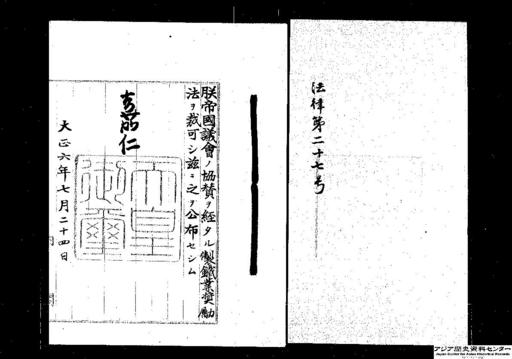 法律第二十七号
朕帝國議會ノ協賛ヲ經タル製鐵業奬勵
法ヲ裁可シ茲ニ之ヲ公布セシム
嘉仁
天皇御璽
大正六年七月二十四日
アジア歴史資料センター
Japan Center for Asian Historical Records